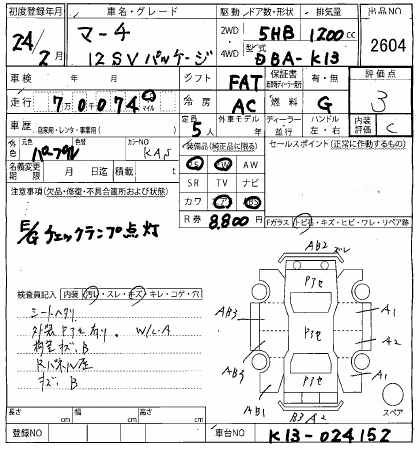 初度登録年月 車名・グレード 駆動 ドア数・形状 排気量 出品NO
24/2月 マーチ 2WD 4WD 5HB 1200cc 2604
12SVパッケージ 型式 DBA-K13
車検 年 月 シフト FAT 保証書 有・無 評価点
走行 7万0074 km マイル 冷房 AC 燃料 G 3
車歴 自家用・レンタ・事業用( ) 定員 5人 外車モデル年 年 ディーラー 並行 ハンドル 左・右 内装評価 C
外色 元色 パープル 色替 カラーNO KAS 装備品(純正品に限る) セールスポイント(正常に作動するもの)
名義変更期限 月 日 積載 t PS PW AW
注意事項(欠品・修復・不具合箇所および状態) SR TV ナビ
カワ
R券 8,800円
E/Gチェックランプ点灯
Fガラス トビ石・キズ・ヒビ・ワレ・リペア跡
検査員記入 内装 汚れ・スレ・キズ・キレ・コゲ・穴
シートヘタリ
外装Pアセ有り. W/C-A
キズ.B
Rパネル歪
キズ.B
AB2
Pアセ
AB3 A1
Pアセ A2
AB3 A1
Pアセ
AB1 B3A2
スペア
長さ cm 幅 cm 高さ cm
登録NO 車台NO K13-024152